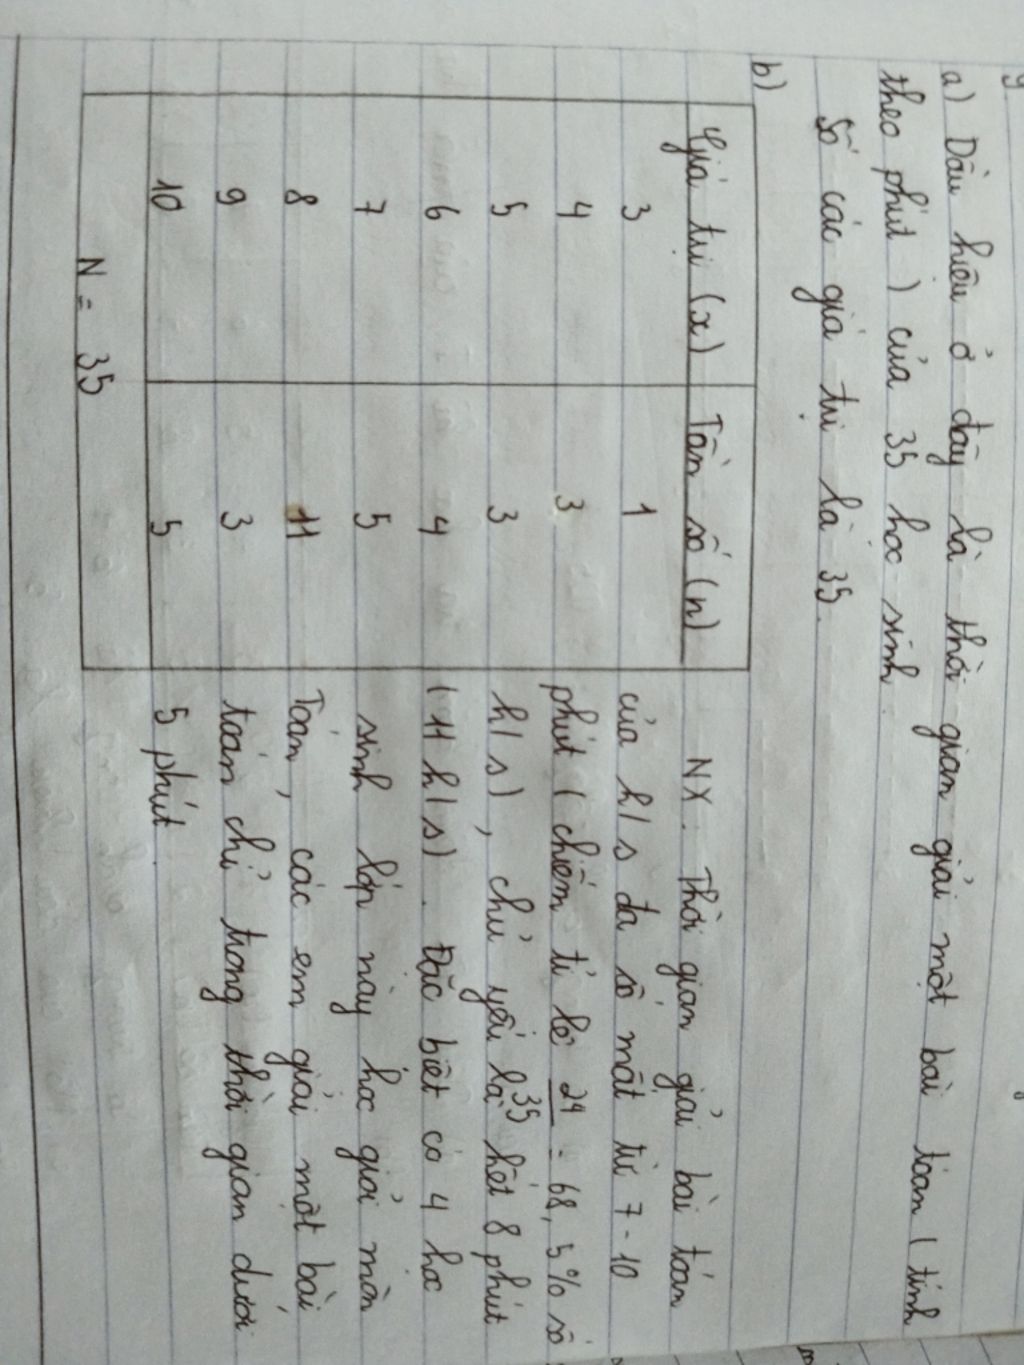 a) Dấu hiệu ở đây là thời gian giải một bài toán (tính
theo phút) của 35 học sinh.
Số các giá trị là 35.
b)
Giá trị (x) Tần số (n)
3 1
4 3
5 3
6 4
7 5
8 11
9 3
10 5
N = 35
NX: Thời gian giải bài toán
của h/s đa số mất từ 7 - 10
phút (chiếm tỉ lệ 24/35 = 68,5% số
h/s), chủ yếu là hết 8 phút
(11 h/s). Đặc biệt có 4 học
sinh lớp này học giỏi môn
Toán, các em giải một bài
toán chỉ trong thời gian dưới
5 phút.